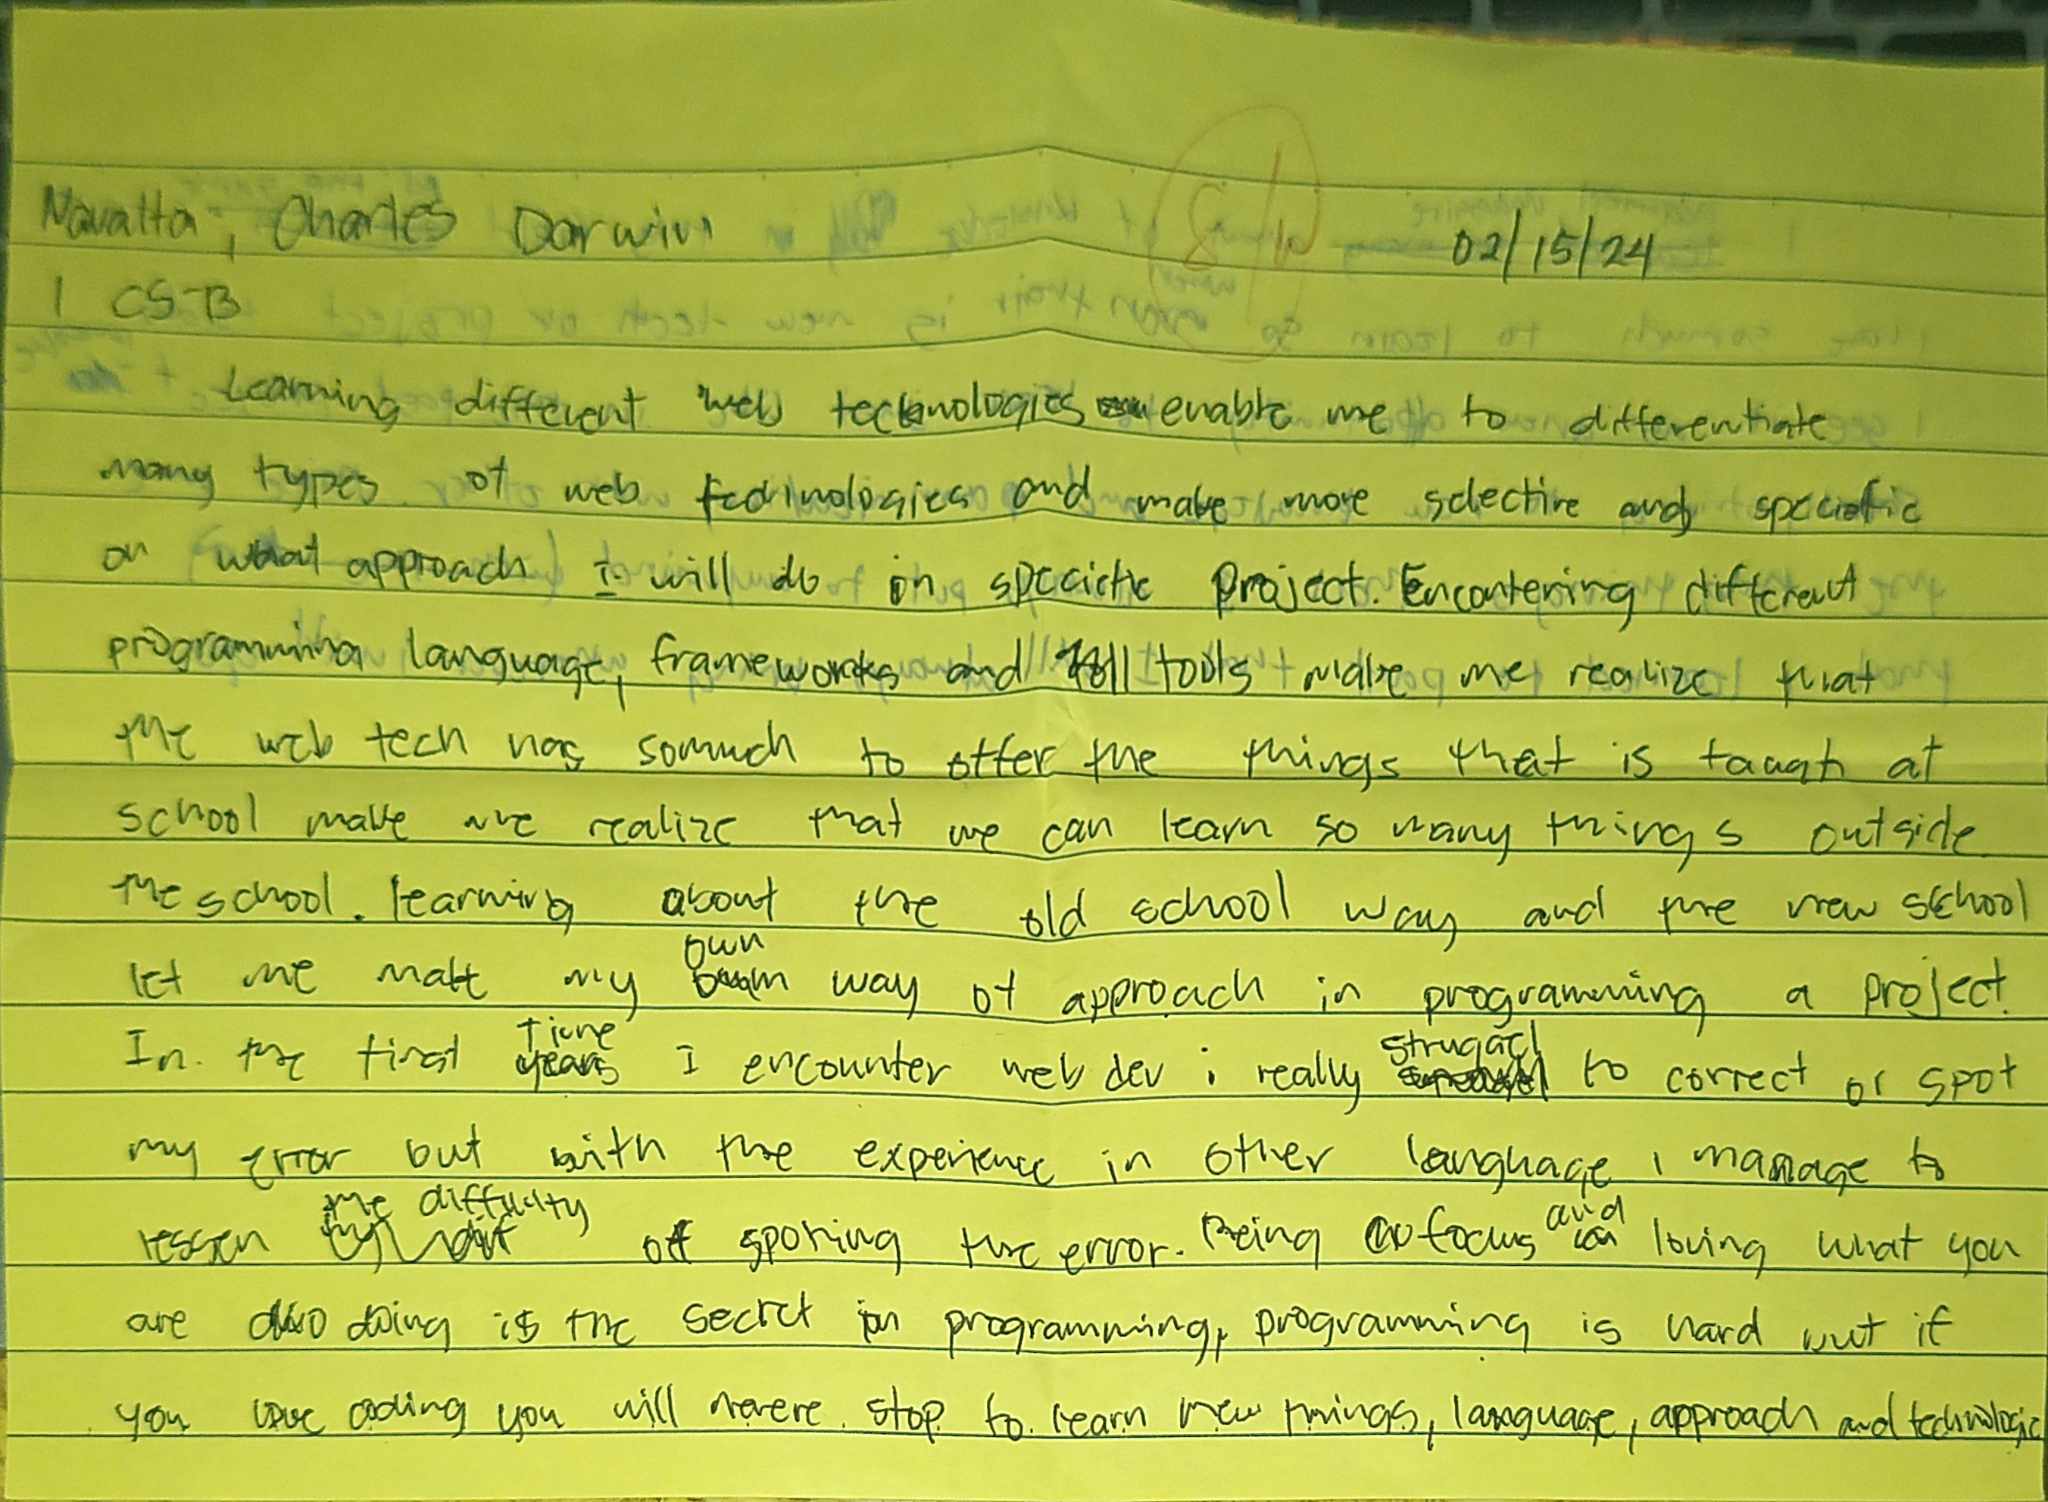 Navalta, Charles Darwin 02/15/24
1 CS-B
Learning different web technologies enable me to differentiate
many types of web technologies and make more selective and specific
on what approach i will do in specicic project. Encontering different
programming language, frameworks and tools make me realize that
the web tech has somuch to offer the things that is taugh at
school make me realize that we can learn so many things outside
the school. learning about the old school way and the new school
let me make my own way of approach in programming a project.
In the first Time I encounter web dev i really struggel to correct or spot
my error but with the experience in other language i manage to
lessen the difficulty of spoting the error. Being focus and loving what you
are doing is the secret in programming, programming is hard but if
you love coding you will nevere stop to learn new things, language, approach and technologie